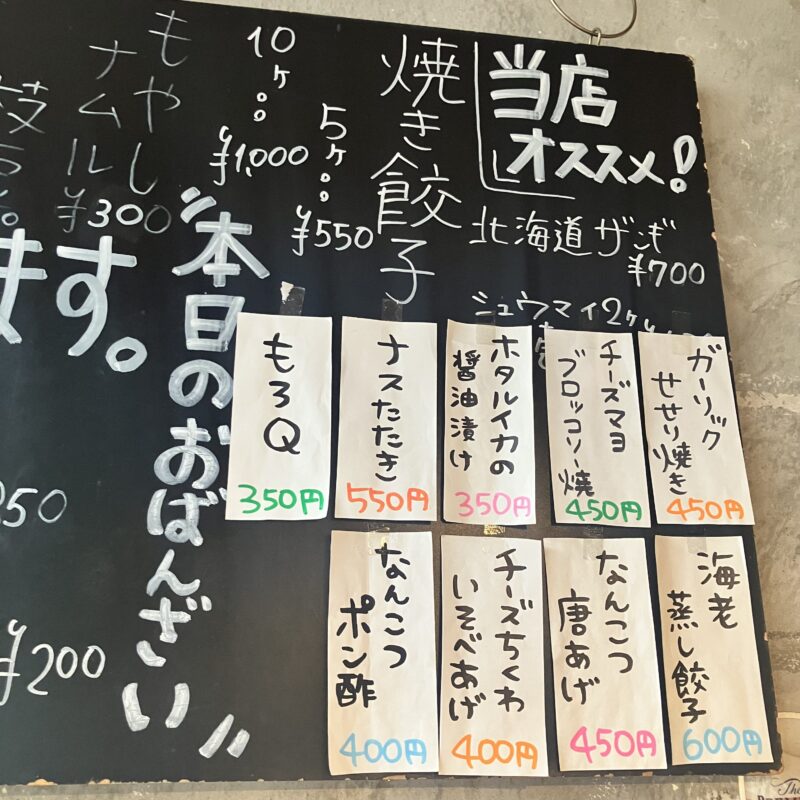 当店
オススメ!
北海道ザンギ
¥700
シュウマイ2ヶ
焼き餃子
5ヶ
¥550
10ヶ
¥1,000
もやし
ナムル
¥300
枝
ます。
"本日のおばんざい"
¥200
ガーリック
せせり焼き
450円
チーズマヨ
ブロッコリー焼
450円
ホタルイカの
醤油漬け
350円
ナスたたき
550円
もろQ
350円
海老
蒸し餃子
600円
なんこつ
唐あげ
450円
チーズちくわ
いそべあげ
400円
なんこつ
ポン酢
400円